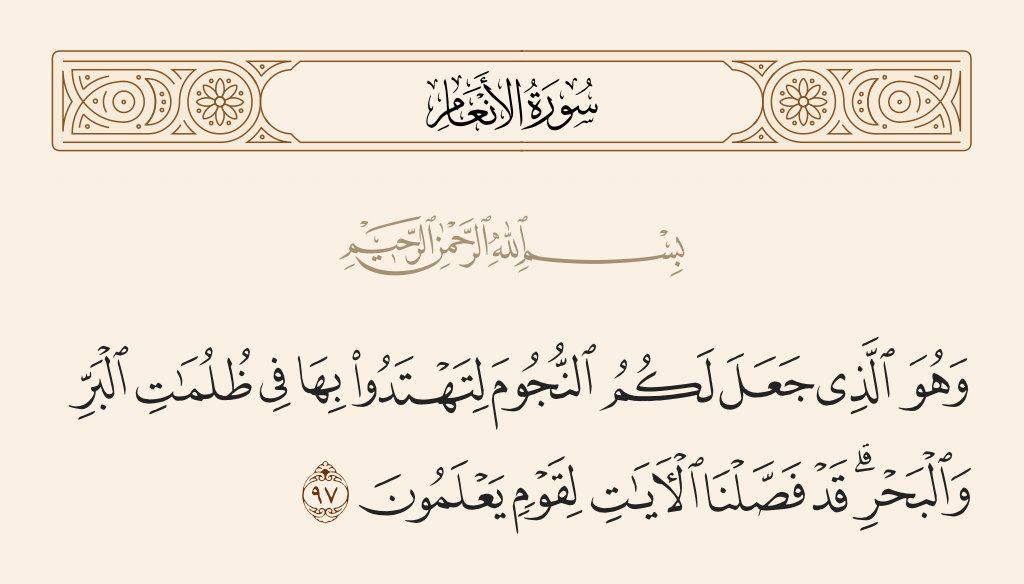 سُورَةُ الأَنْعَامِ
بِسْمِ ٱللَّهِ ٱلرَّحْمَٰنِ ٱلرَّحِيمِ
وَهُوَ ٱلَّذِى جَعَلَ لَكُمُ ٱلنُّجُومَ لِتَهْتَدُوا۟ بِهَا فِى ظُلُمَٰتِ ٱلْبَرِّ
وَٱلْبَحْرِ ۗ قَدْ فَصَّلْنَا ٱلْءَايَٰتِ لِقَوْمٍ يَعْلَمُونَ ٩٧